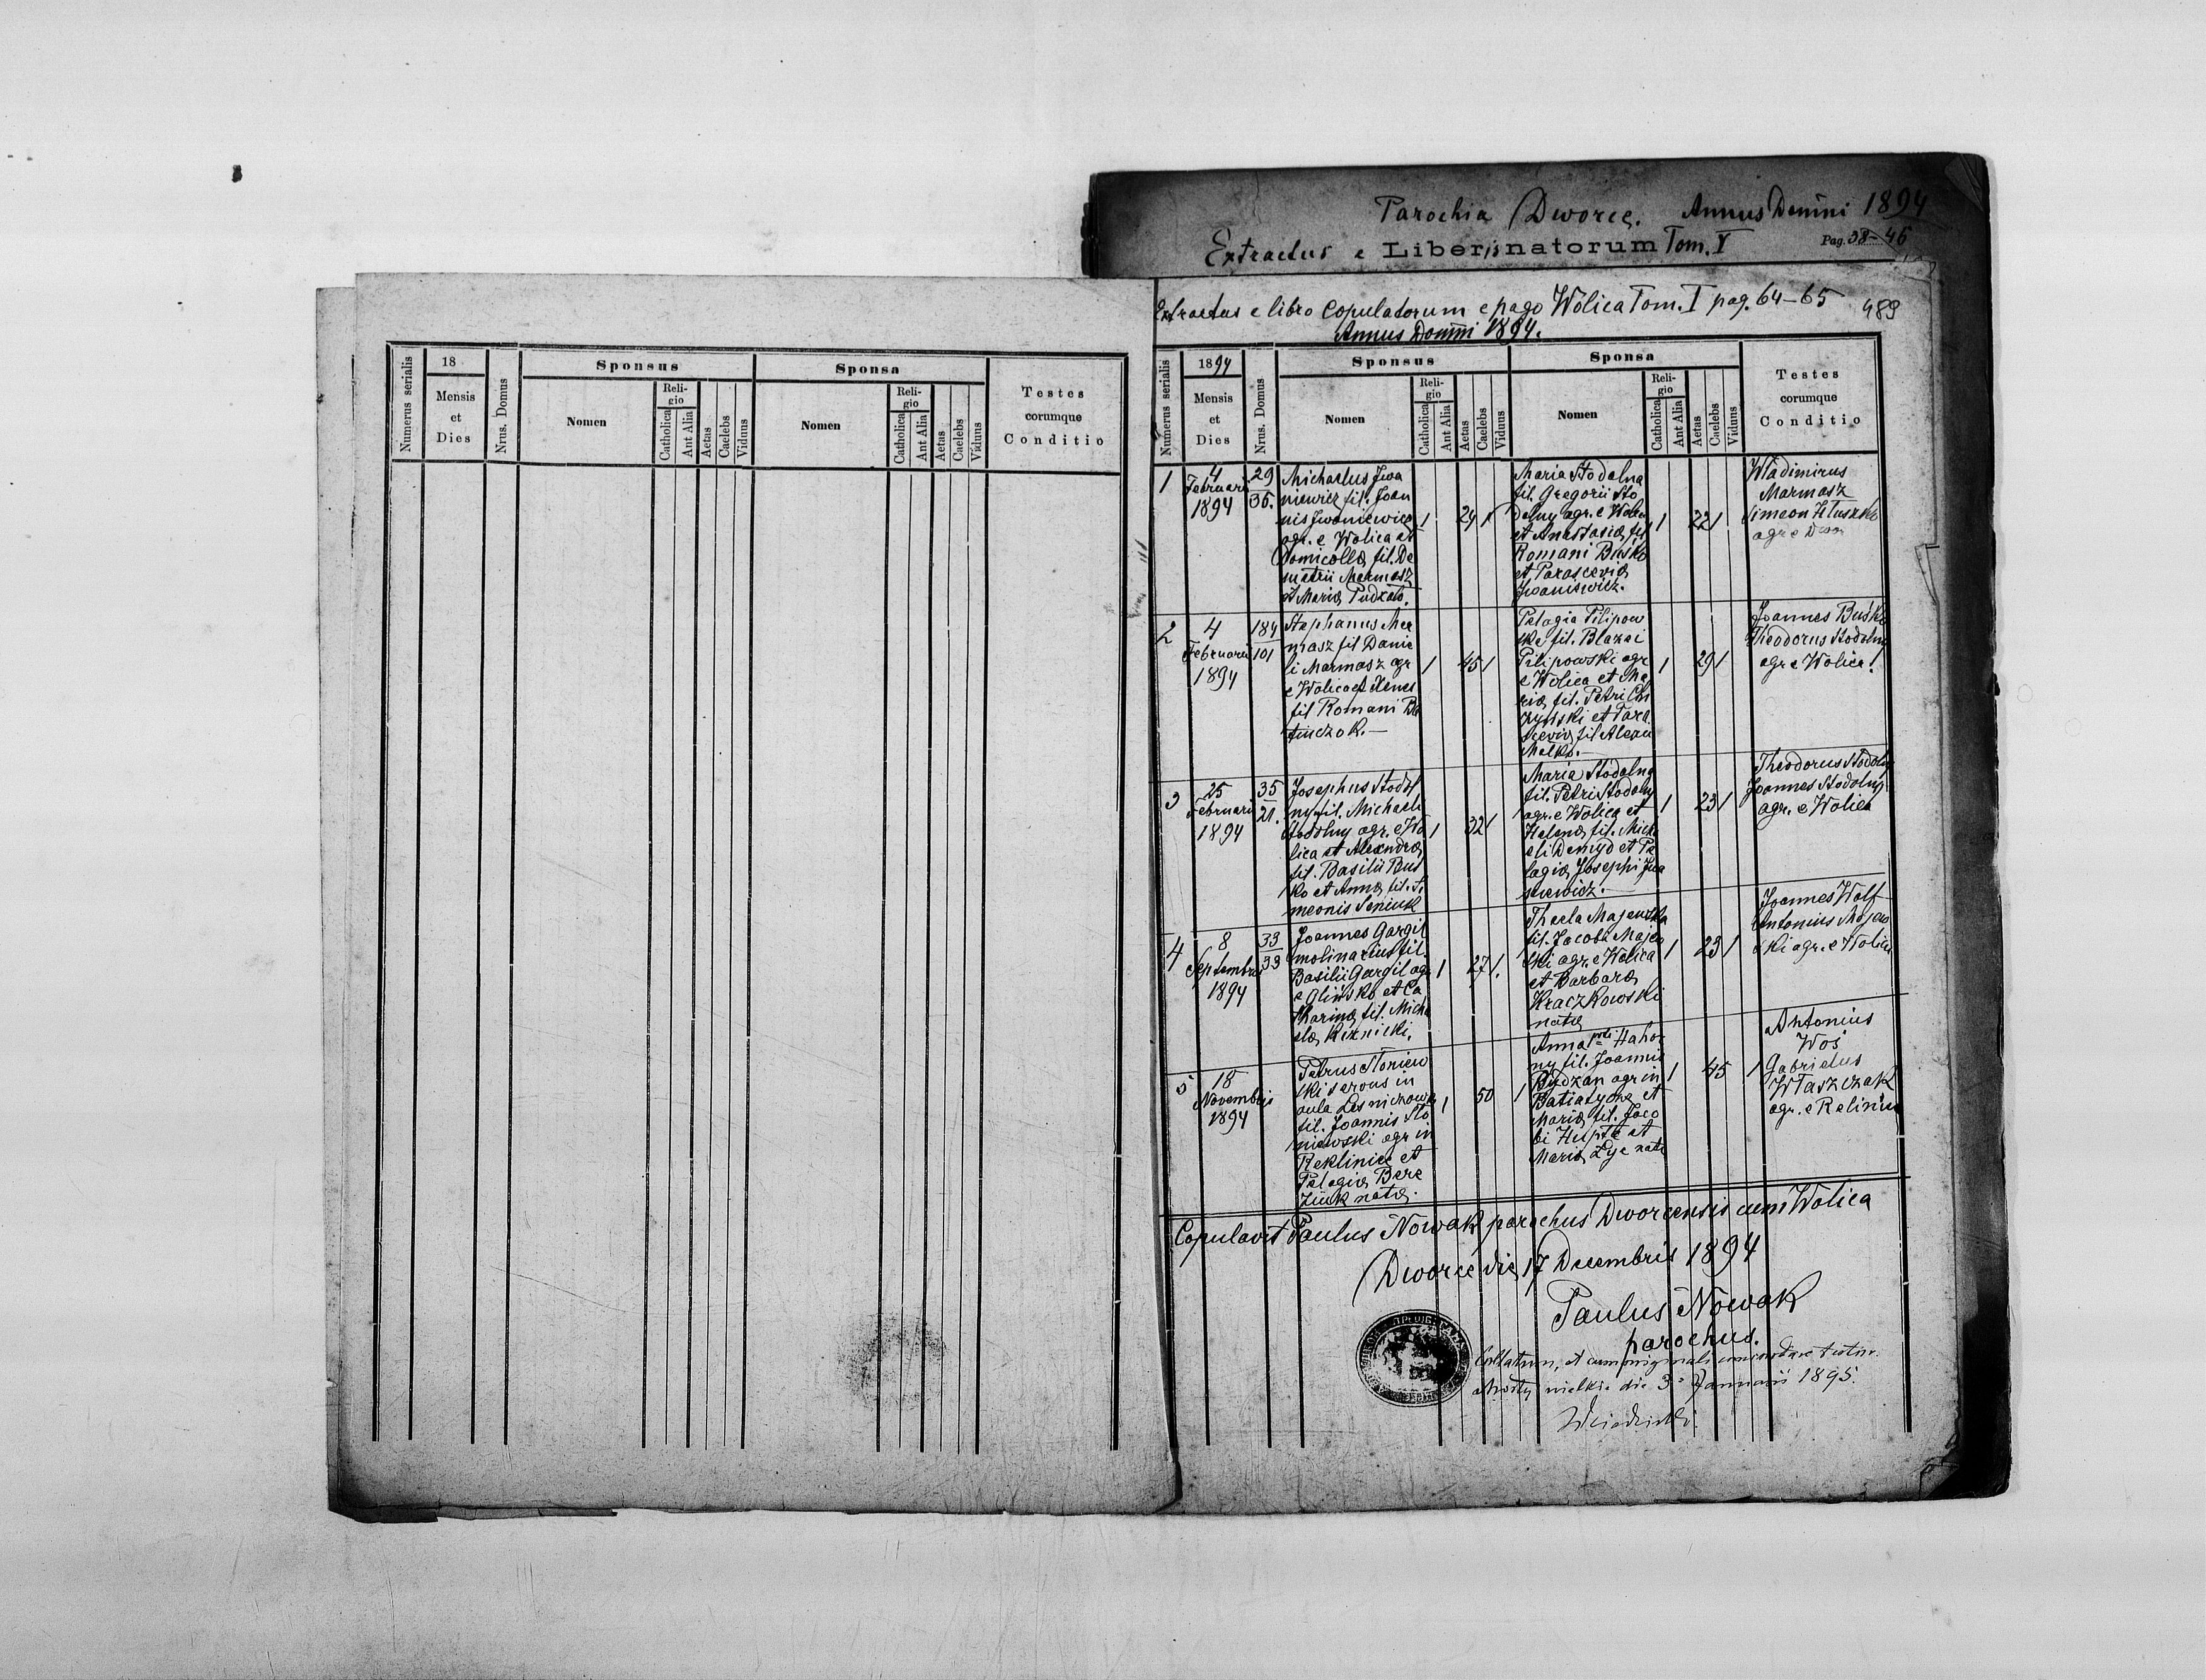 Parochia Dworce. Annus Domini 1894
Extractus e Liber natorum Tom. V Pag. 38-46
Extractus e libro Copulatorum e pago Wolica Tom. I pag. 64-65 489
Annus Domini 1894.
Numerus serialis
18
Mensis
et
Dies
Nrus. Domus
Sponsus
Nomen
Reli-
gio
Catholica
Aut Alia
Aetas
Caelebs
Viduus
Sponsa
Nomen
Reli-
gio
Catholica
Aut Alia
Aetas
Caelebs
Viduus
Testes
corumque
Conditio
Numerus serialis
1894
Mensis
et
Dies
Nrus. Domus
Sponsus
Nomen
Reli-
gio
Catholica
Aut Alia
Aetas
Caelebs
Viduus
Sponsa
Nomen
Reli-
gio
Catholica
Aut Alia
Aetas
Caelebs
Viduus
Testes
corumque
Conditio
1
4
Februarii
1894
29
36.
Michaelus Jwa
niewicz fil. Joan
nis Jwaniewicz
agr. e Wolica et
fil. De
metrii Marmasz
et Maria
1
24
1
Maria Stodolna
fil. Gregorii Sto
dolny agr. e Wolica
et Anastasia fil
Romani Busko
et Parascevia
Jwaniewicz.
1
22
1
Wladimirus
Marmasz
Simeon
agr e
2
4
Februarii
1894
184
101
Stephanus Mar
masz fil Danie
li Marmasz agr
e Wolica et
fil Romani
1
45
1
Pelagia Pilipow
ska fil. Blazei
Pilipowski agr
e Wolica et Ma
ria fil. Petri
et Para
scevia fil
Malko.—
1
29
1
Joannes Busko
Theodorus Stodolny
agr e Wolica
3
25
Februarii
1894
35
21.
Josephus Stodol
ny fil. Michaeli
Stodolny agr. e Wo
lica et Alexandra
fil. Basilii Bus
ko et Anna fil. Si
meonis Seniuk
1
32
1
Maria Stodolna
fil. Petri Stodolny
agr. e Wolica et
Helena fil. Micha
eli Demyd et Pe
lagia Josephi Jwa
niewicz.—
1
23
1
Theodorus Stodolny
Joannes Stodolny
agr. e Wolica
4
8
Septembris
1894
33
33
Joannes Gargil
molinarius fil.
Basilii Gargil agr
e Glińsko et Ca
tharina fil. Micha
ela
1
27
1.
Thecla Majewska
fil. Jacobi Majew
ski agr. e Wolica
et Barbara
Kraczkowski
nata
1
23
1
Joannes Wolf
Antonius Majew
ski agr. e Wolica
5
18
Novembris
1894
Petrus Sloniew
ski servus in
aula
fil. Joannis Slo
niewski agr in
Reklinice et
Pelagia Bere
ziuk nata.
1
50
1
Anna
ny fil. Joannis
Budzan agr in
Batiatycze et
Maria fil. Jaco
bi et
Maria nata
1
45
1
Antonius
Woś
Gabrielus
Wlaszczak
agr. e Reklinice
Copulavit Paulus Nowak parochus Dworcensis cum Wolica
Dworce die 17 Decembris 1894
Paulus Nowak
parochus.
Collatum, et cum originali concordare testor.
Mosty wielkie die 3 Januarii 1895.